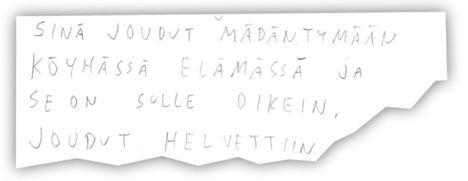 SINÄ JOUDUT MÄDÄNTYMÄÄN
KÖYHÄSSÄ ELÄMÄSSÄ JA
SE ON SULLE OIKEIN,
JOUDUT HELVETTIIN